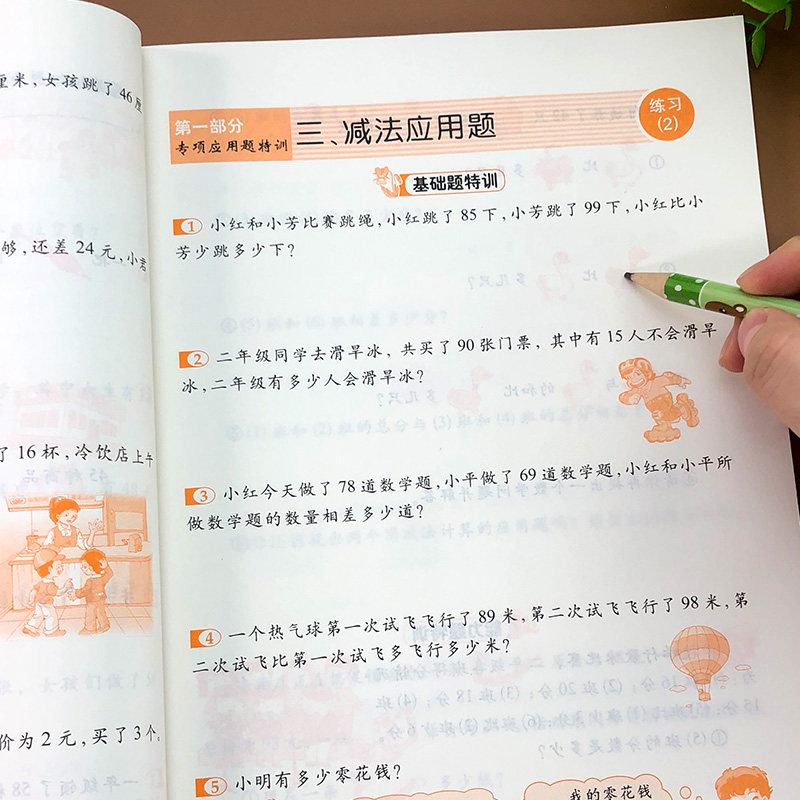 厘米,女孩跳了46厘
够,还差24元,小君
了16杯,冷饮店上午
价为2元,买了3个。
第一部分
专项应用题特训
三、减法应用题
练习
(2)
基础题特训
1 小红和小芳比赛跳绳,小红跳了85下,小芳跳了99下,小红比小
芳少跳多少下?
2 二年级同学去滑旱冰,共买了90张门票,其中有15人不会滑旱
冰,二年级有多少人会滑旱冰?
3 小红今天做了78道数学题,小平做了69道数学题,小红和小平所
做数学题的数量相差多少道?
4 一个热气球第一次试飞飞行了89米,第二次试飞飞行了98米,第
二次试飞比第一次试飞多飞行多少米?
5 小明有多少零花钱?
我的零花钱